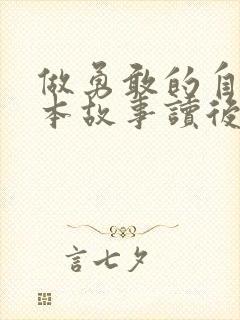 做勇敢的自
本故事讀後
言七夕